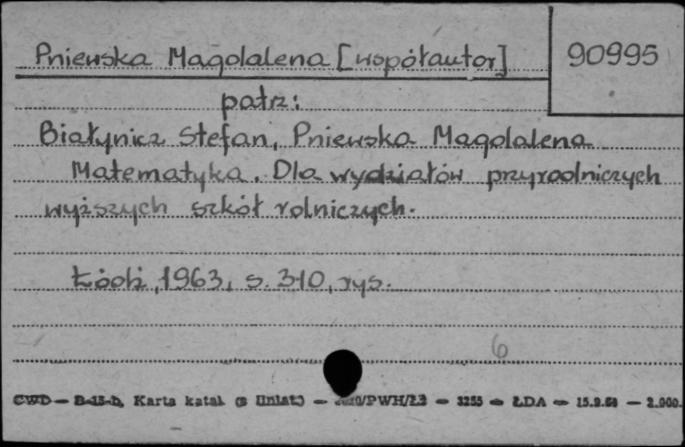 Pniewska Magdalena [współautor] 90995
patrz:
Białynicz Stefan, Pniewska Magdalena
Matematyka. Dla wydziałów przyrodniczych
wyższych szkół rolniczych.
Łódź, 1963, s. 310, rys.
6
CWD — B-15-b, Karta katal. — ŁDA — — 2.000.